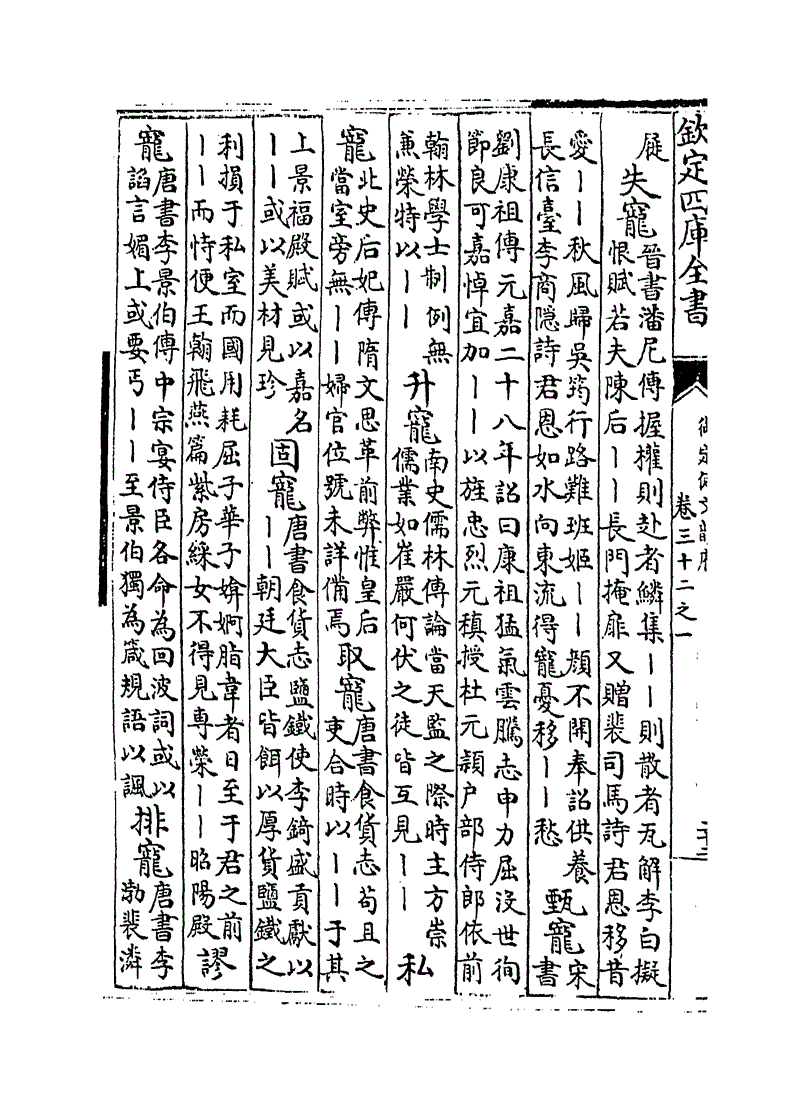 欽定四庫全書
御定佩文韻府
卷三十二之一
屣
失寵
晉書潘尼傳握權則赴者鱗集丨丨則散者瓦解李白擬
恨賦若夫陳后丨丨長門掩扉又贈裴司馬詩君恩移昔
愛丨丨秋風歸吳筠行路難班姬丨丨顔不開奉詔供養
長信臺李商隱詩君恩如水向東流得寵憂移丨丨愁
甄寵
宋書
劉康祖傳元嘉二十八年詔曰康祖猛氣雲騰志申力屈没世徇
節良可嘉悼宜加丨丨以旌忠烈元稹授杜元穎户部侍郎依前
翰林學士制例無
兼榮特以丨丨
升寵
南史儒林傳論當天監之際時主方崇
儒業如崔嚴何伏之徒皆互見丨丨
私
寵
北史后妃傳隋文思革前弊惟皇后
當室旁無丨丨婦官位號未詳備焉
取寵
唐書食貨志苟且之
吏合時以丨丨于其
上景福殿賦或以嘉名
丨丨或以美材見珍
固寵
唐書食貨志鹽鐵使李錡盛貢獻以
丨丨朝廷大臣皆餌以厚貨鹽鐵之
利損于私室而國用耗屈子華子媕婀脂韋者日至于君之前
丨丨而恃便王翰飛燕篇紫房綵女不得見專榮丨丨昭陽殿
謬
寵
唐書李景伯傳中宗宴侍臣各命為回波詞或以
諂言媚上或要丐丨丨至景伯獨為箴規語以諷
排寵
唐書李
渤裴潾